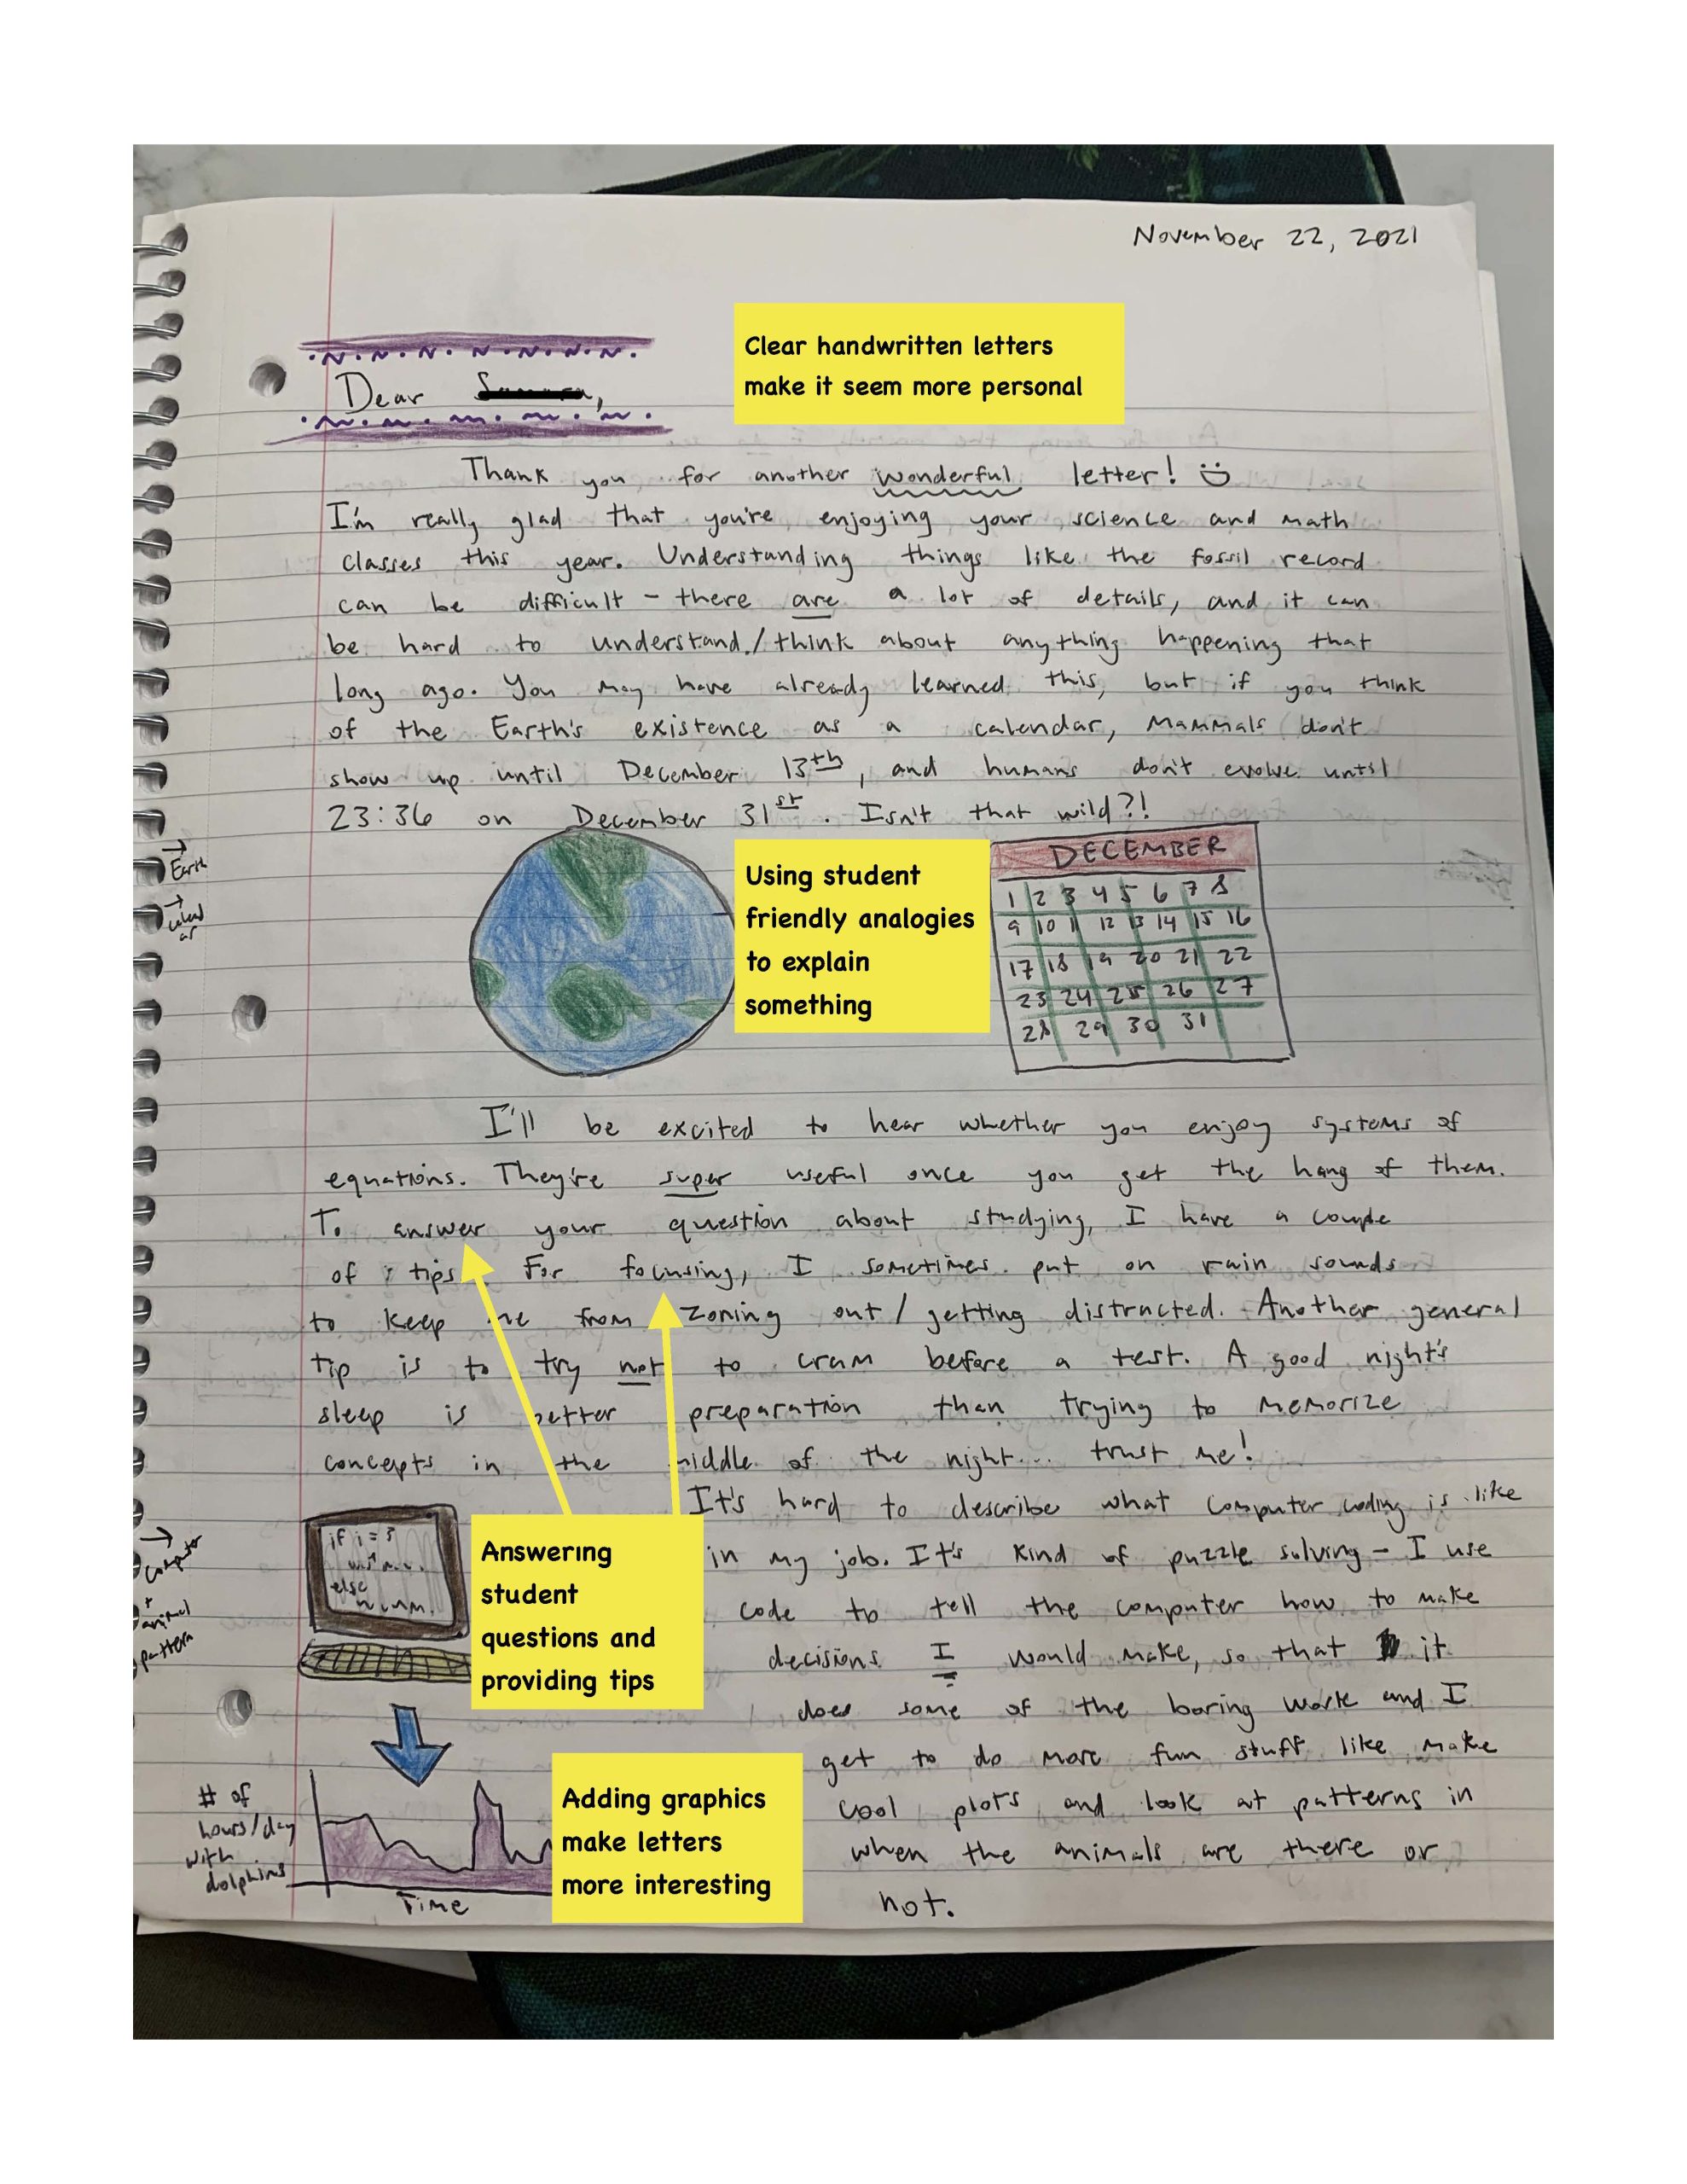 November 22, 2021
Clear handwritten letters
make it seem more personal
Dear
Thank you for another wonderful letter!
I'm really glad that you're enjoying your science and math
classes this year. Understanding things like the fossil record
can be difficult - there are a lot of details, and it can
be hard to understand/think about anything happening that
long ago. You may have already learned this, but if you think
of the Earth's existence as a calendar, mammals don't
show up until December 13th, and humans don't evolve until
23:36 on December 31st. Isn't that wild?!
→ Earth
→ calend
ar
Using student
friendly analogies
to explain
something
DECEMBER
1 2 3 4 5 6 7 8
9 10 11 12 13 14 15 16
17 18 19 20 21 22
23 24 25 26 27
28 29 30 31
I'll be excited to hear whether you enjoy systems of
equations. They're super useful once you get the hang of them.
To answer your question about studying, I have a couple
of tips. For focusing, I sometimes put on rain sounds
to keep me from zoning out/getting distracted. Another general
tip is to try not to cram before a test. A good night's
sleep is better preparation than trying to memorize
concepts in the middle of the night... trust me!
It's hard to describe what computer coding is like
in my job. It's kind of puzzle solving - I use
code to tell the computer how to make
decisions I would make, so that it
does some of the boring work and I
get to do more fun stuff like make
cool plots and look at patterns in
when the animals are there or
not.
→ computer
+
animal
pattern
if i = 3
else
Answering
student
questions and
providing tips
# of
hours/day
with
dolphins
Time
Adding graphics
make letters
more interesting